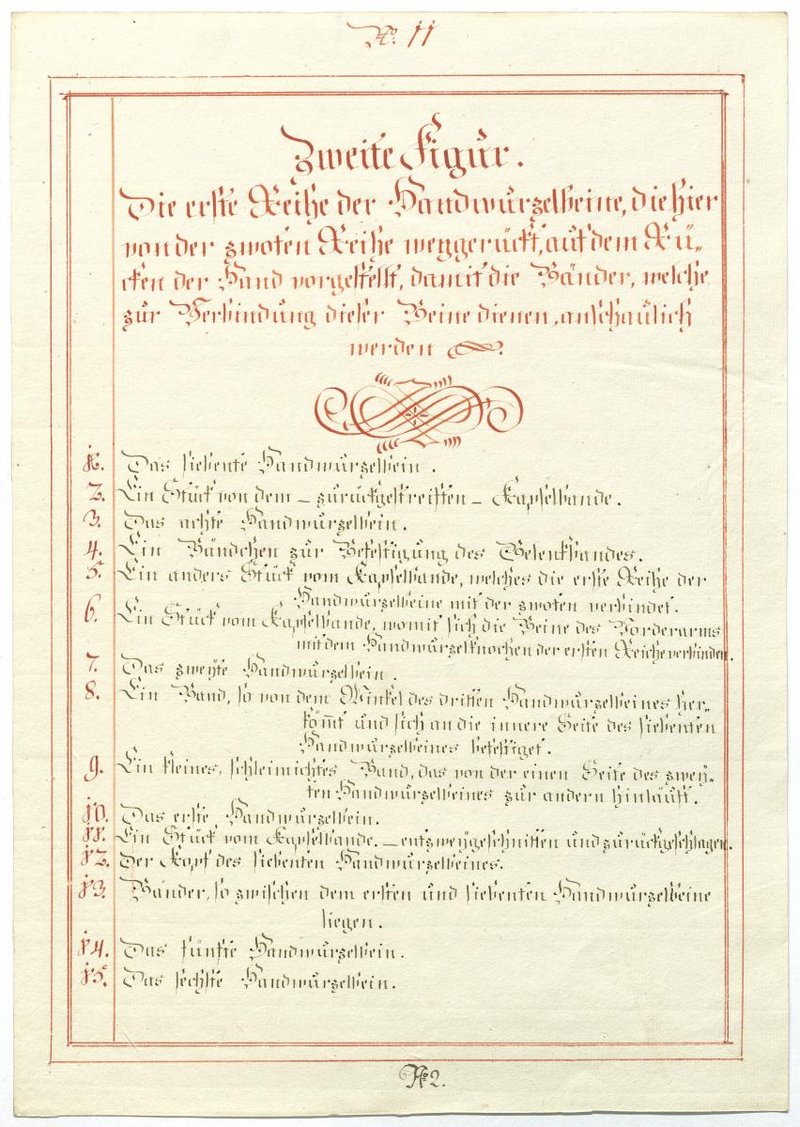 No. 11
Zweite Figur.
Die erste Reihe der Handwurzelbeine, die hier
von der zwoten Reihe weggerückt, auf dem Rü-
cken der Hand vorgestellt, damit die Bänder, welche
zur Verbindung dieser Beine dienen, anschaulich
werden
1. Das siebente Handwurzelbein.
2. Ein Stück von dem – zurückgestreiften – Kapselbande.
3. Das achte Handwurzelbein.
4. Ein Bändchen zur Befestigung des Gelenkbandes.
5. Ein anders Stück vom Kapselbande, welches die erste Reihe der
Handwurzelbeine mit der zwoten verbindet.
6. Ein Stück vom Kapselbande, womit sich die Beine des Vorderarms
mit dem Handwurzelknochen der ersten Reiche verbinden.
7. Das zweyte Handwurzelbein.
8. Ein Band, so von dem Winkel des dritten Handwurzelbeines her-
kom̄t und sich an die innere Seite des siebenten
Handwurzelbeines befestiget.
9. Ein kleines, schleimichtes Band, das von der einen Seite des zwey-
ten Handwurzelbeines zur andern hinläuft.
10. Das erste Handwurzelbein.
11. Ein Stück vom Kapselbande. – entzweygeschnitten und zurückgeschlagen.
12. Der Kopf des siebenten Handwurzelbeines.
13. Bänder, so zwischen dem ersten und siebenten Handwurzelbeine
liegen.
14. Das fünfte Handwurzelbein.
15. Das sechste Handwurzelbein.